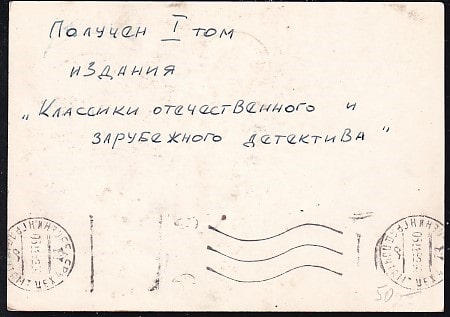 Получен I том
издания
„Классики отечественного и
зарубежного детектива"
50-